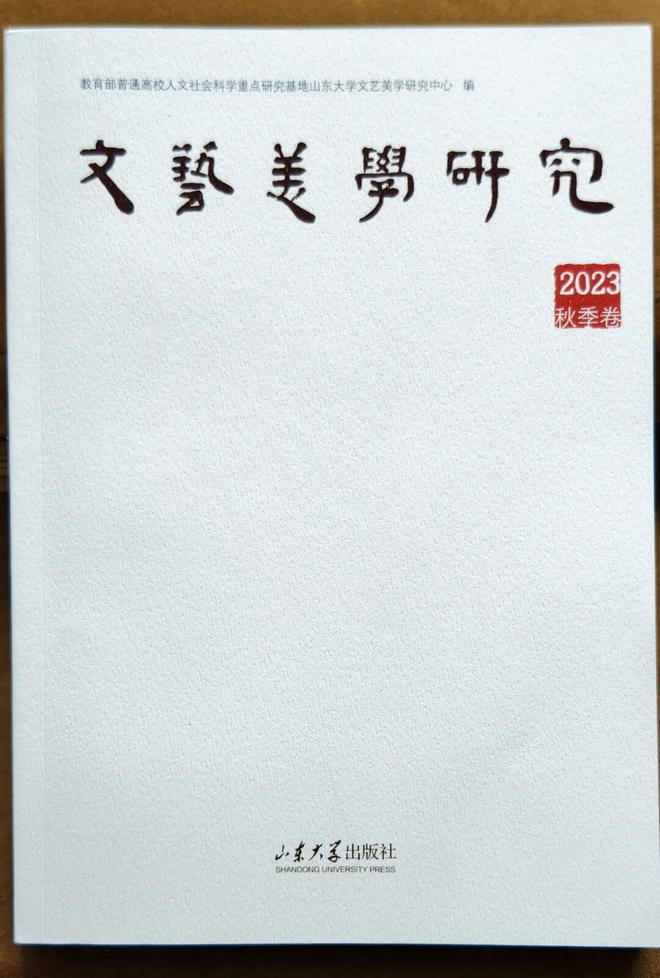 教育部普通高校人文社会科学重点研究基地山东大学文艺美学研究中心 编
文藝美學研究
2023
秋季卷
山东大学出版社
SHANDONG UNIVERSITY PRESS